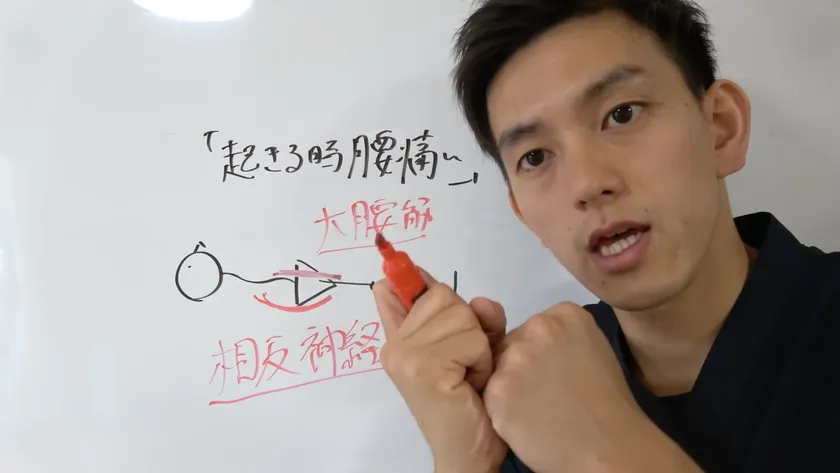 「起きる時腰痛い」
大腰筋
相反神経